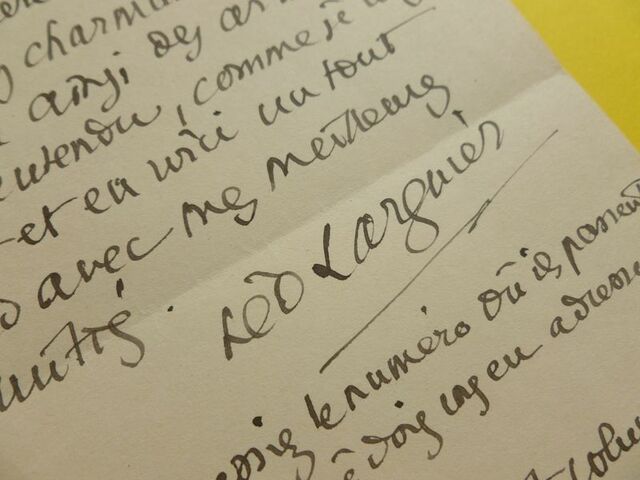 charma
ainsi des ar
entendu, comme je
et en voici un tout
avec mes meilleurs
amitiés.
Léo Larguier
le numéro où ils passent
dois un en adresse